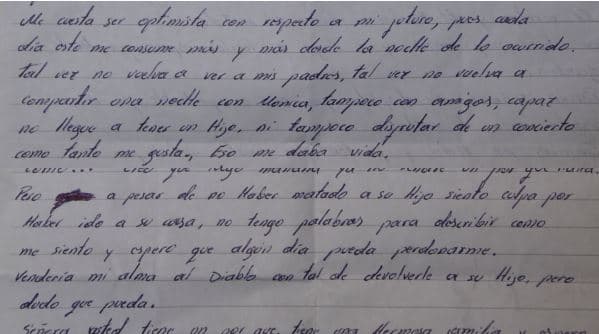 Me cuesta ser optimista con respecto a mi futuro, pues cada
día esto me consume más y más desde la noche de lo ocurrido.
Tal vez no vuelva a ver a mis padres, tal vez no vuelva a
compartir una noche con Monica, tampoco con amigos, capaz
no llegue a tener un Hijo, ni tampoco disfrutar de un concierto
como tanto me gusta., Eso me daba vida.
mañana ya no
Pero a pesar de no Haber matado a su Hijo siento culpa por
Haber ido a su casa, no tengo palabras para describir como
me siento y espero que algún día pueda perdonarme.
Vendería mi alma al Diablo con tal de devolverle a su Hijo, pero
dudo que pueda.
Señora usted tiene un por que, tiene una Hermosa familia y